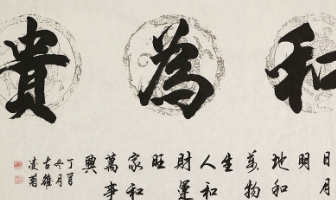 和為貴
日月
明
地和
萬物
生
人和
財運
旺
家和
萬事
興
丁酉
冬月
古雄